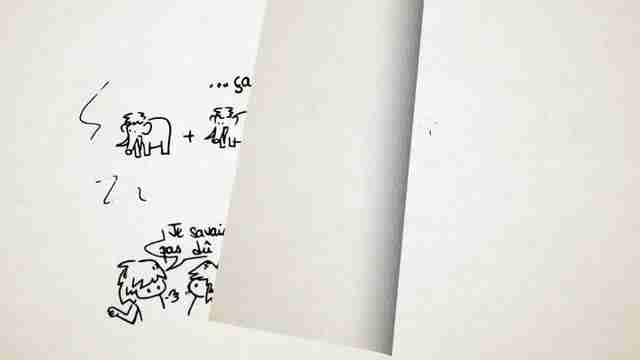 ...ça
+
Je savais
pas dû